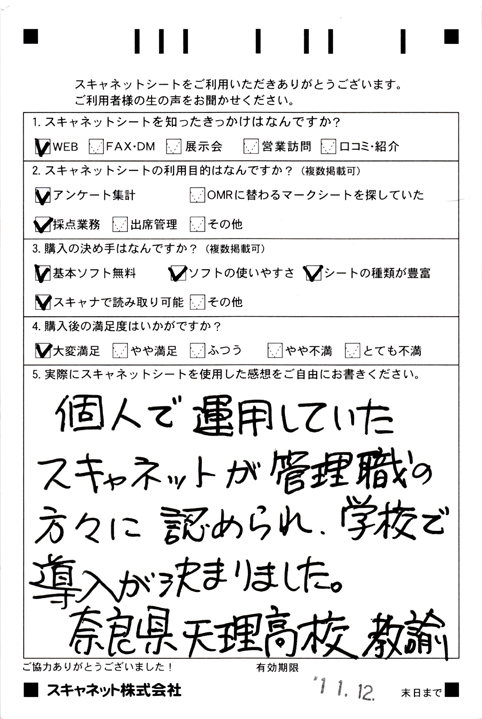 スキャネットシートをご利用いただきありがとうございます。
ご利用者様の生の声をお聞かせください。
1. スキャネットシートを知ったきっかけはなんですか?
WEB FAX・DM 展示会 営業訪問 口コミ・紹介
2. スキャネットシートの利用目的はなんですか? (複数掲載可)
アンケート集計 OMRに替わるマークシートを探していた
採点業務 出席管理 その他
3. 購入の決め手はなんですか? (複数掲載可)
基本ソフト無料 ソフトの使いやすさ シートの種類が豊富
スキャナで読み取り可能 その他
4. 購入後の満足度はいかがですか?
大変満足 やや満足 ふつう やや不満 とても不満
5. 実際にスキャネットシートを使用した感想をご自由にお書きください。
個人で運用していた
スキャネットが管理職の
方々に認められ、学校で
導入が決まりました。
奈良県天理高校 教諭
ご協力ありがとうございました! 有効期限
スキャネット株式会社 '11.12. 末日まで